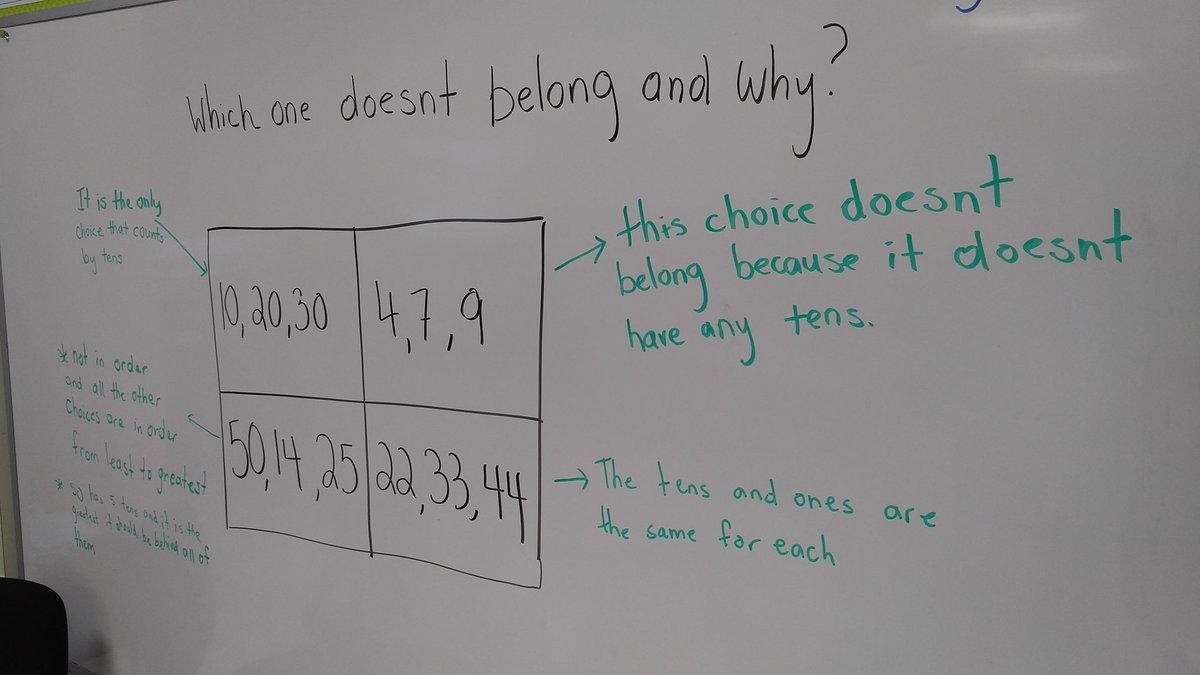 Which one doesnt belong and why?
It is the only
choice that counts
by tens
10,20,30
4,7,9
this choice doesnt
belong because it doesnt
have any tens.
* not in order
and all the other
choices are in order
from least to greatest
* 50 has 5 tens and it is the
greatest it should be behind all of
them
50,14,25
22,33,44
The tens and ones are
the same for each